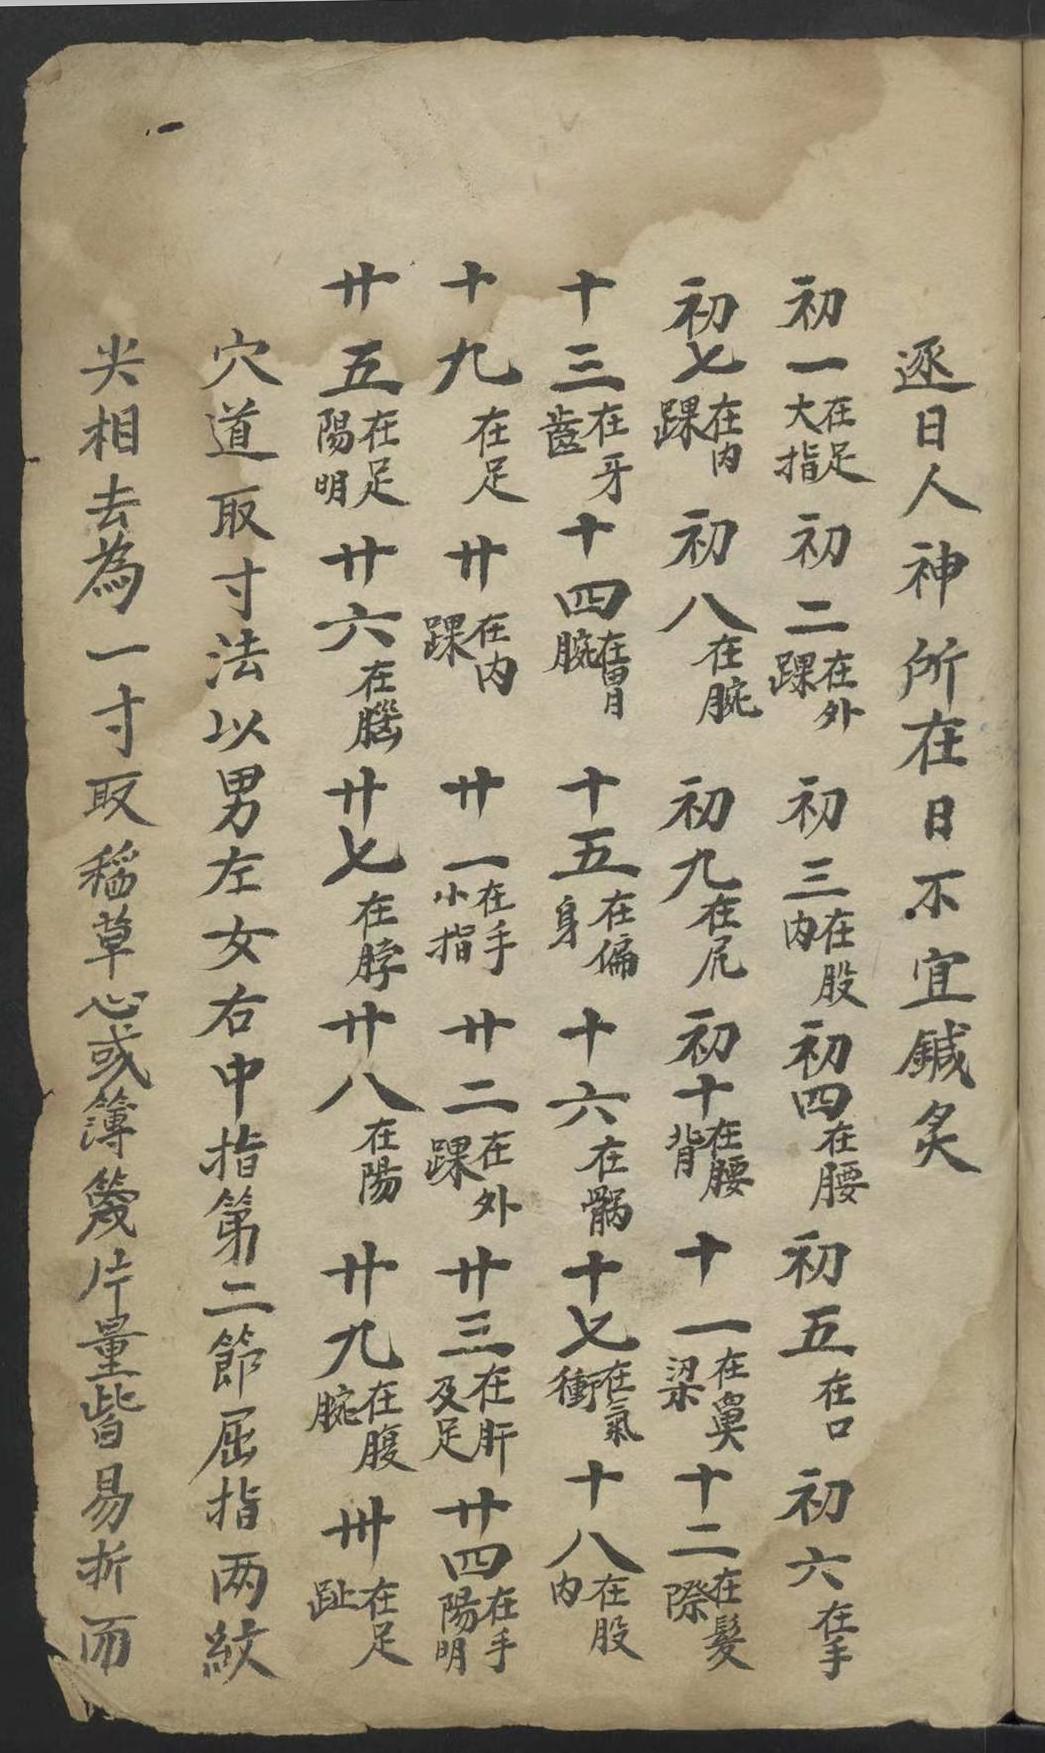 逐日人神所在日不宜鍼炙
初一在足大指初二在外踝初三在股内初四在腰初五在口初六在手
初七在内踝初八在腕初九在尻初十在腰背十一在鼻梁十二在髮際
十三在牙齒十四在胃腕十五在偏身十六在䯞十七在氣衝十八在股内
十九在足廿在内踝廿一在手小指廿二在外踝廿三在肝及足廿四在手陽明
廿五在足陽明廿六在腦廿七在脖廿八在陽廿九在腹腕卅在足趾
穴道取寸法以男左女右中指第二節屈指两紋
尖相去為一寸取稻草心或簿篾片量皆易折而